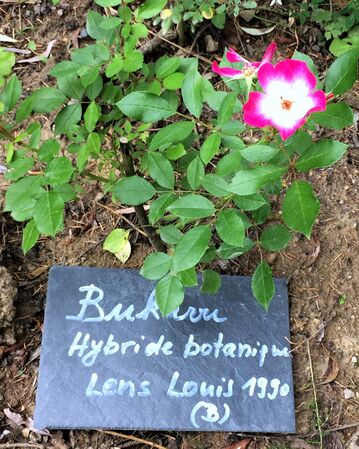 Bukuvu
Hybride botanique
Lens Louis 1990
(B)